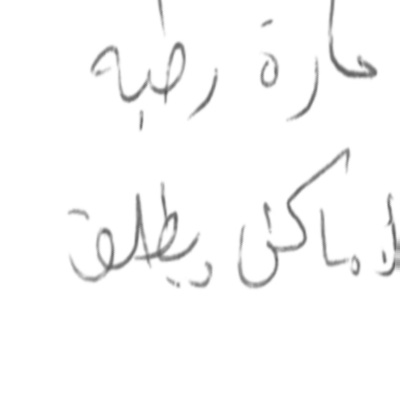 حارة رطبه
لاماكن يطلق